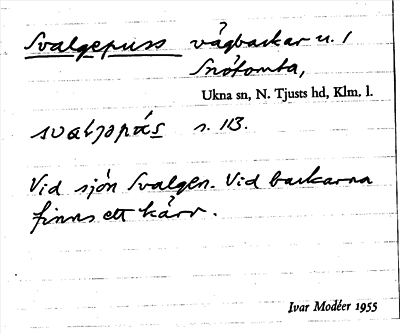 Svalgepuss vägbackar u. /
Snótomta,
Ukna sn, N. Tjusts hd, Klm. l.
s. 113.
Vid sjön Svalgen. Vid backarna
finns ett kärr.
Ivar Modéer 1955